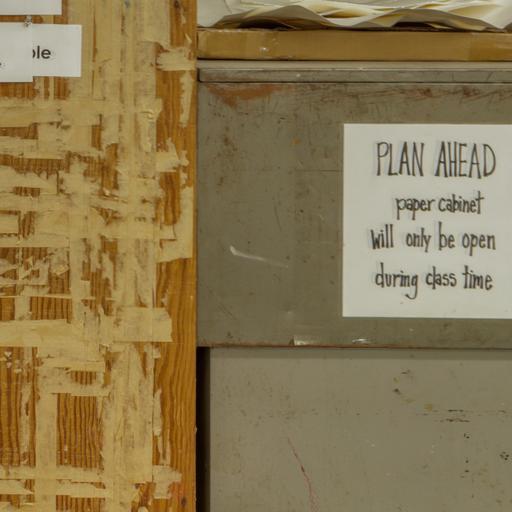 ole
PLAN AHEAD
paper cabinet
will only be open
during class time